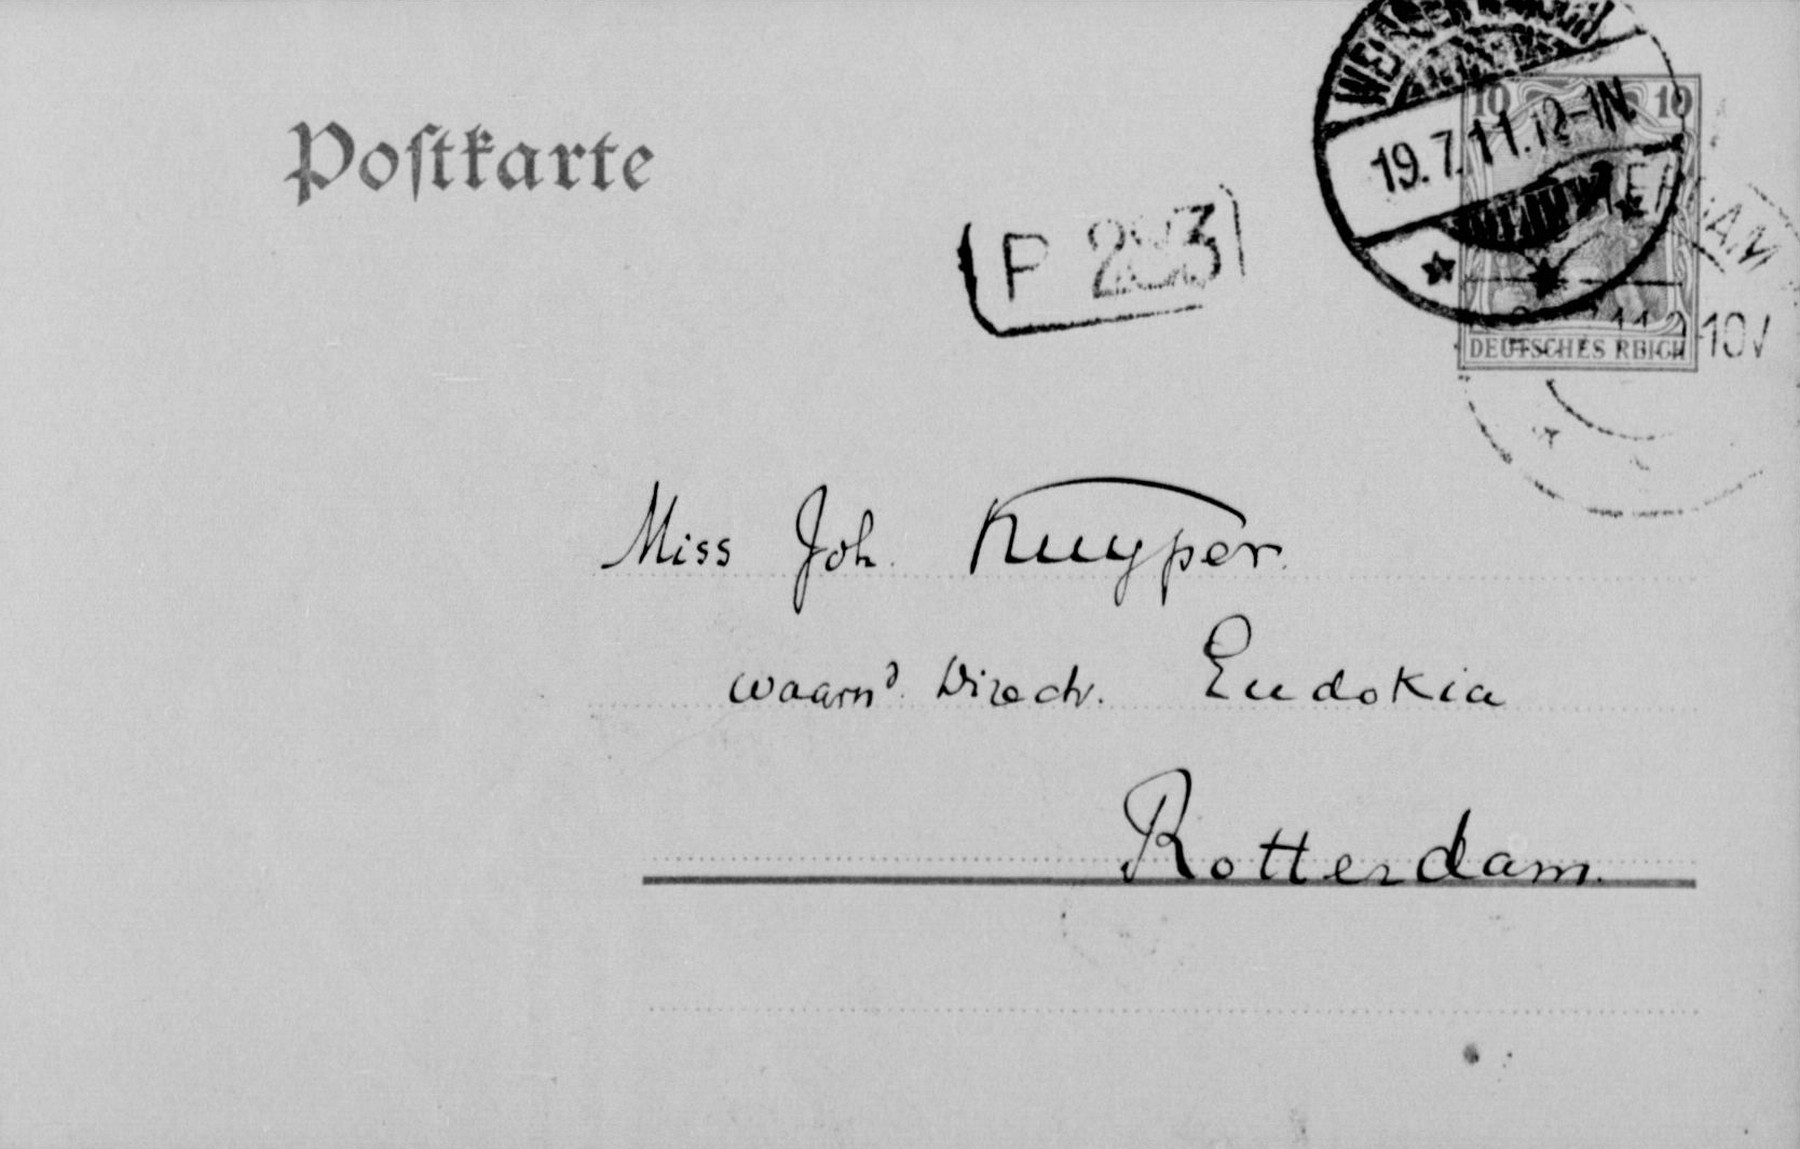 Postkarte
P 283
19.7.11.12-1N
10 10
DEUTSCHES REICH
Miss Joh. Kuyper.
waarnd. Direct. Eudokia
Rotterdam.